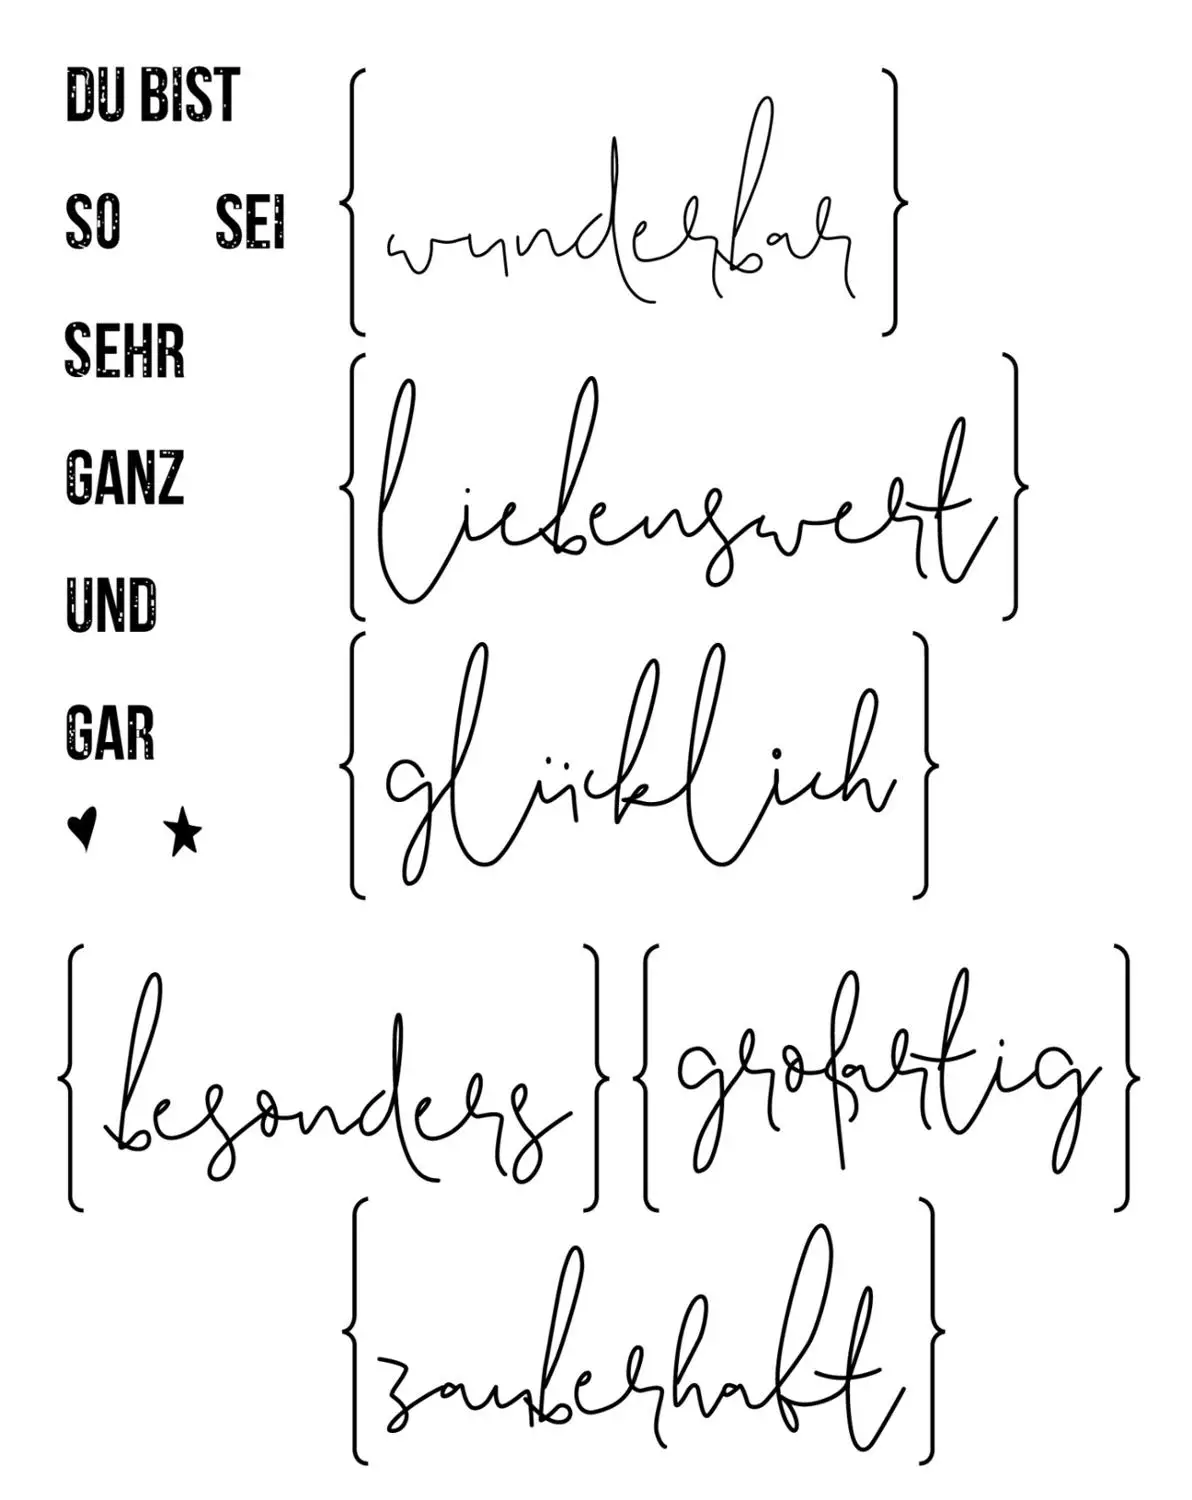 DU BIST
{wunderbar}
SO SEI
SEHR
{liebenswert}
GANZ
UND
GAR
{glücklich}
{besonders} {großartig}
{zauberhaft}